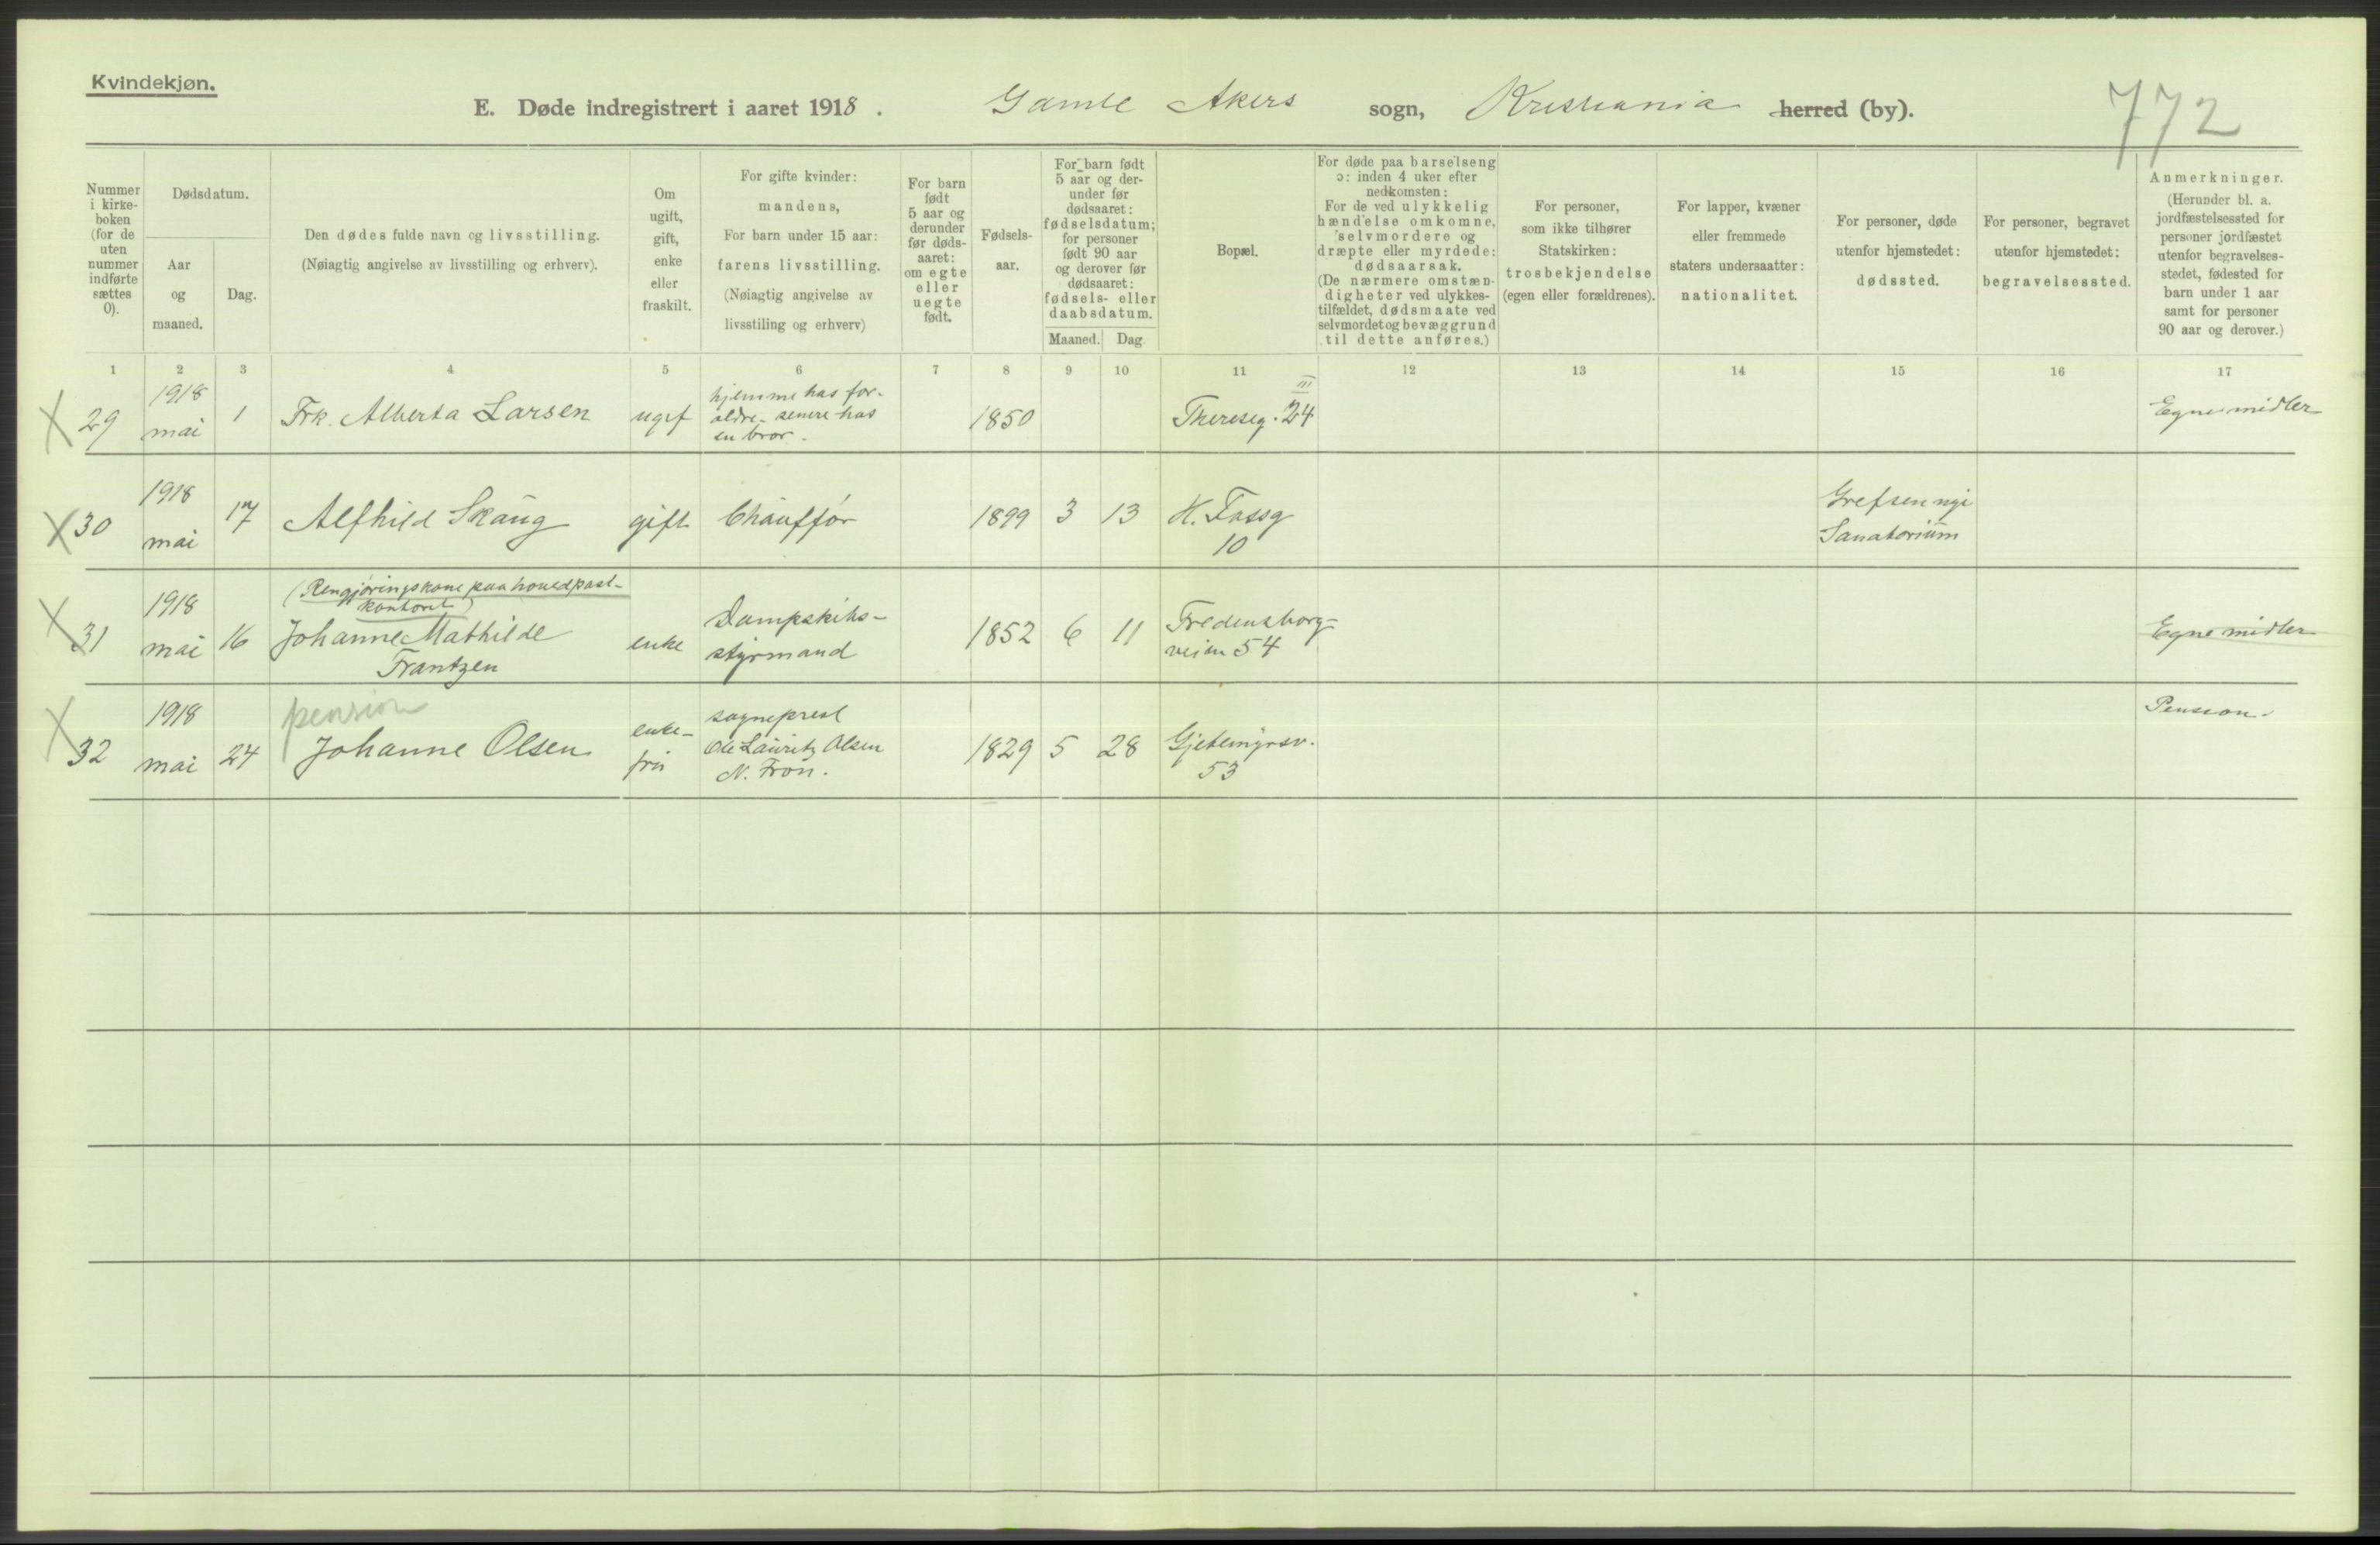 Kvindekjøn.
E. Døde indregistrert i aaret 1918. Gamle Akers sogn, Kristiania herred (by).
772
Nummer i kirke-boken (for de uten nummer indførte sættes 0).
Dødsdatum.
Aar og maaned.
Dag.
Den dødes fulde navn og livsstilling.
(Nøiagtig angivelse av livsstilling og erhverv).
Om ugift, gift, enke eller fraskilt.
For gifte kvinder:
mandens,
For barn under 15 aar:
farens livsstilling.
(Nøiagtig angivelse av
livsstiling og erhverv)
For barn født 5 aar og derunder før døds-aaret: om egte eller uegte født.
Fødsels-aar.
For barn født 5 aar og der-under før dødsaaret: fødselsdatum; for personer født 90 aar og derover før dødsaaret: fødsels- eller daabsdatum.
Maaned. Dag
Bopæl.
For døde paa barselseng
ɔ: inden 4 uker efter
nedkomsten:
For de ved ulykkelig
hændelse omkomne,
selvmordere og
dræpte eller myrdede:
dødsaarsak.
(De nærmere omstæn-
digheter ved ulykkes-
tilfældet, dødsmaate ved
selvmordet og bevæggrund
til dette anføres.)
For personer,
som ikke tilhører
Statskirken:
trosbekjendelse
(egen eller forældrenes).
For lapper, kvæner
eller fremmede
staters undersaatter:
nationalitet.
For personer, døde
utenfor hjemstedet:
dødssted.
For personer, begravet
utenfor hjemstedet:
begravelsessted.
Anmerkninger.
(Herunder bl. a.
jordfæstelsessted for
personer jordfæstet
utenfor begravelses-
stedet, fødested for
barn under 1 aar
samt for personer
90 aar og derover.)
1 2 3 4 5 6 7 8 9 10 11 12 13 14 15 16 17
X 29
1918 mai
1
Frk. Alberta Larsen
ugif
hjemme hos for-
ældre - senere hos
en bror.
1850
Thereseg. 24 III
Egne midler
X 30
1918 mai
17
Alfhild Skaug
gift
Chauffør
1899 3 13
H. Fassg
10
Grefsen nye
Sanatorium
X 31
1918 mai
16
(Rengjøringskone paa hovedpost-
kontoret)
Johanne Mathilde
Frantzen
enke
Dampskibs-
styrmand
1852 6 11
Fredensborg-
veien 54
Egne midler
X 32
1918 mai
24
pension
Johanne Olsen
enke-
fru
sogneprest
Ole Lauritz Olsen
N. Fron.
1829 5 28
Gjetemyrsv.
53
Pension.